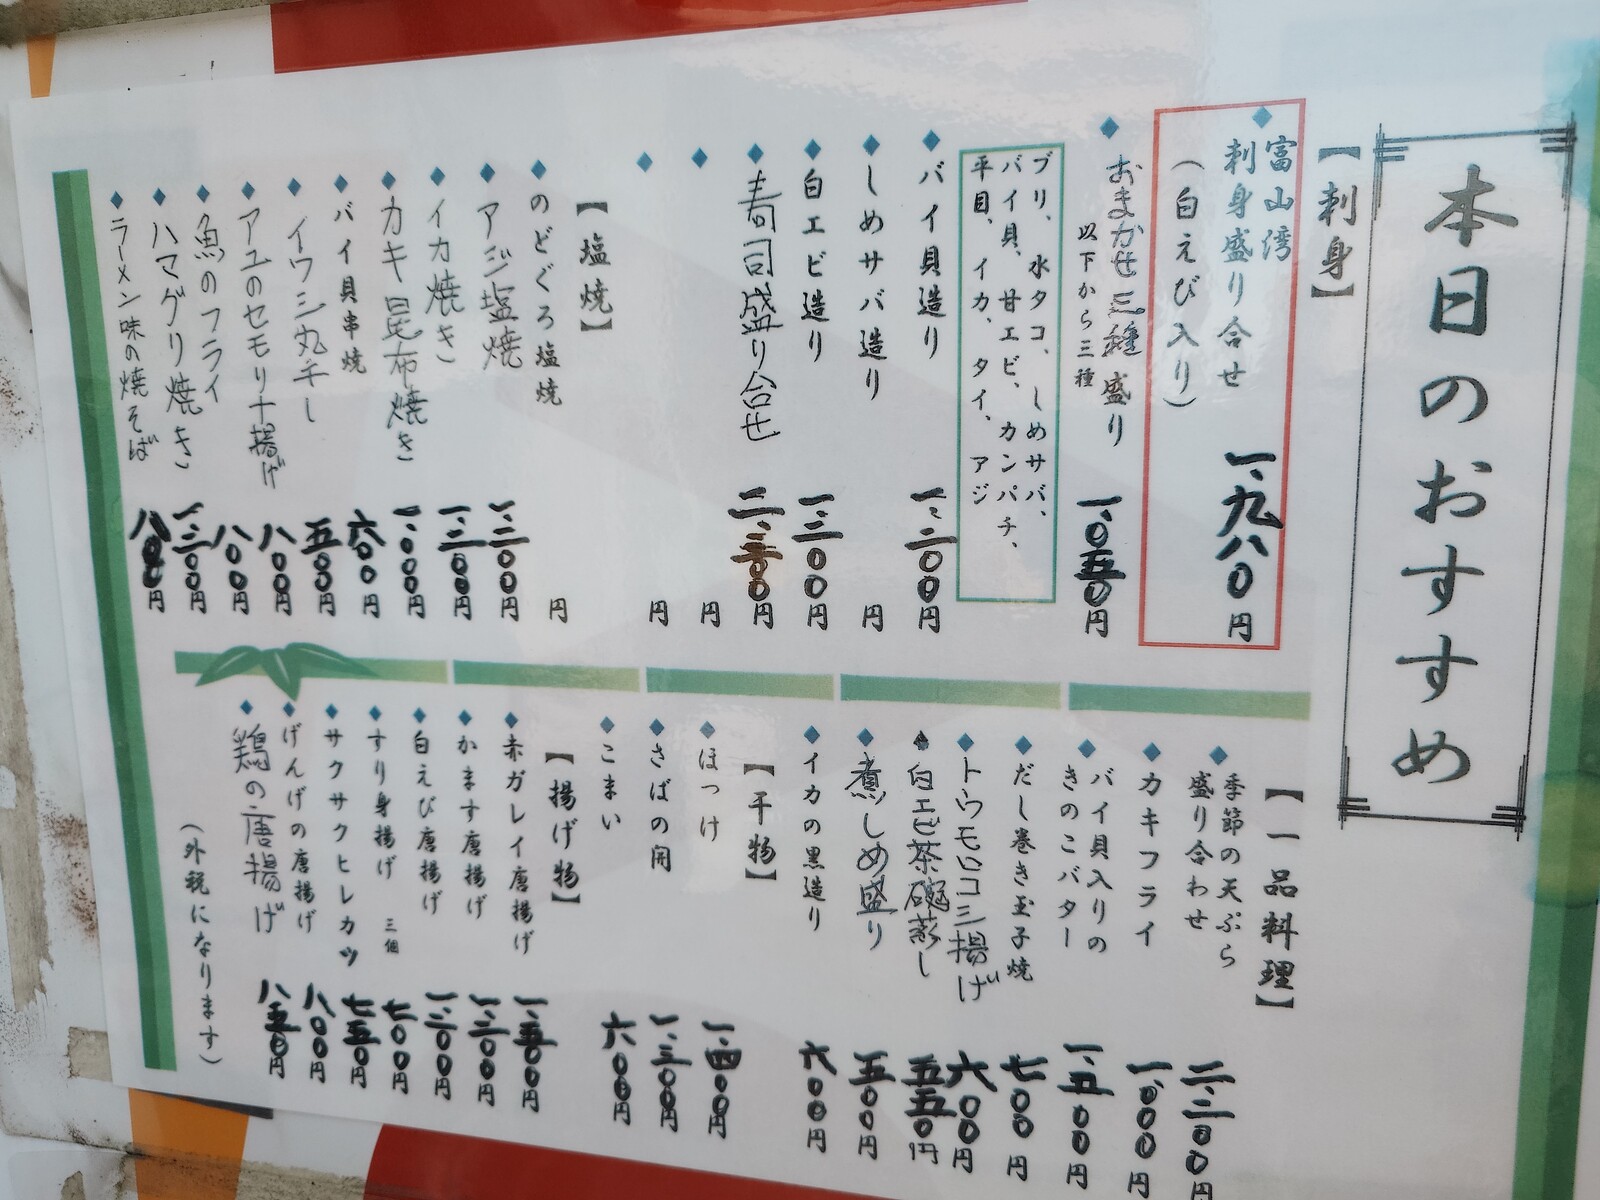 本日のおすすめ
【刺身】
富山湾
刺身盛り合せ
(白えび入り)
一、九八〇円
おまかせ三種盛り
以下から三種
一、〇五〇円
ブリ、水タコ、しめサバ、
バイ貝、甘エビ、カンパチ、
平目、イカ、タイ、アジ
バイ貝造り
一、二〇〇円
しめサバ造り
円
白エビ造り
一、三〇〇円
寿司盛り合せ
円
円
円
【塩焼】
のどぐろ塩焼
円
アジ塩焼
一、二〇〇円
イカ焼き
一、二〇〇円
カキ昆布焼き
一、〇〇〇円
バイ貝串焼
六〇〇円
イワシ丸干し
五〇〇円
アユのセモリナ揚げ
八〇〇円
魚のフライ
八〇〇円
ハマグリ焼き
一、三〇〇円
ラーメン味の焼そば
円
【一品料理】
季節の天ぷら
盛り合わせ
二、二〇〇円
カキフライ
一、〇〇〇円
バイ貝入りの
きのこバター
一、五〇〇円
だし巻き玉子焼
七〇〇円
トウモロコシ揚げ
六〇〇円
白エビ茶碗蒸し
五五〇円
煮しめ盛り
五〇〇円
イカの黒造り
六〇〇円
【干物】
ほっけ
一、四〇〇円
さばの開
一、三〇〇円
こまい
六〇〇円
【揚げ物】
赤ガレイ唐揚げ
一、五〇〇円
かます唐揚げ
一、二〇〇円
白えび唐揚げ
一、三〇〇円
すり身揚げ 三個
七〇〇円
サクサクヒレカツ
七五〇円
げんげの唐揚げ
八〇〇円
鶏の唐揚げ
八五〇円
(外税になります)